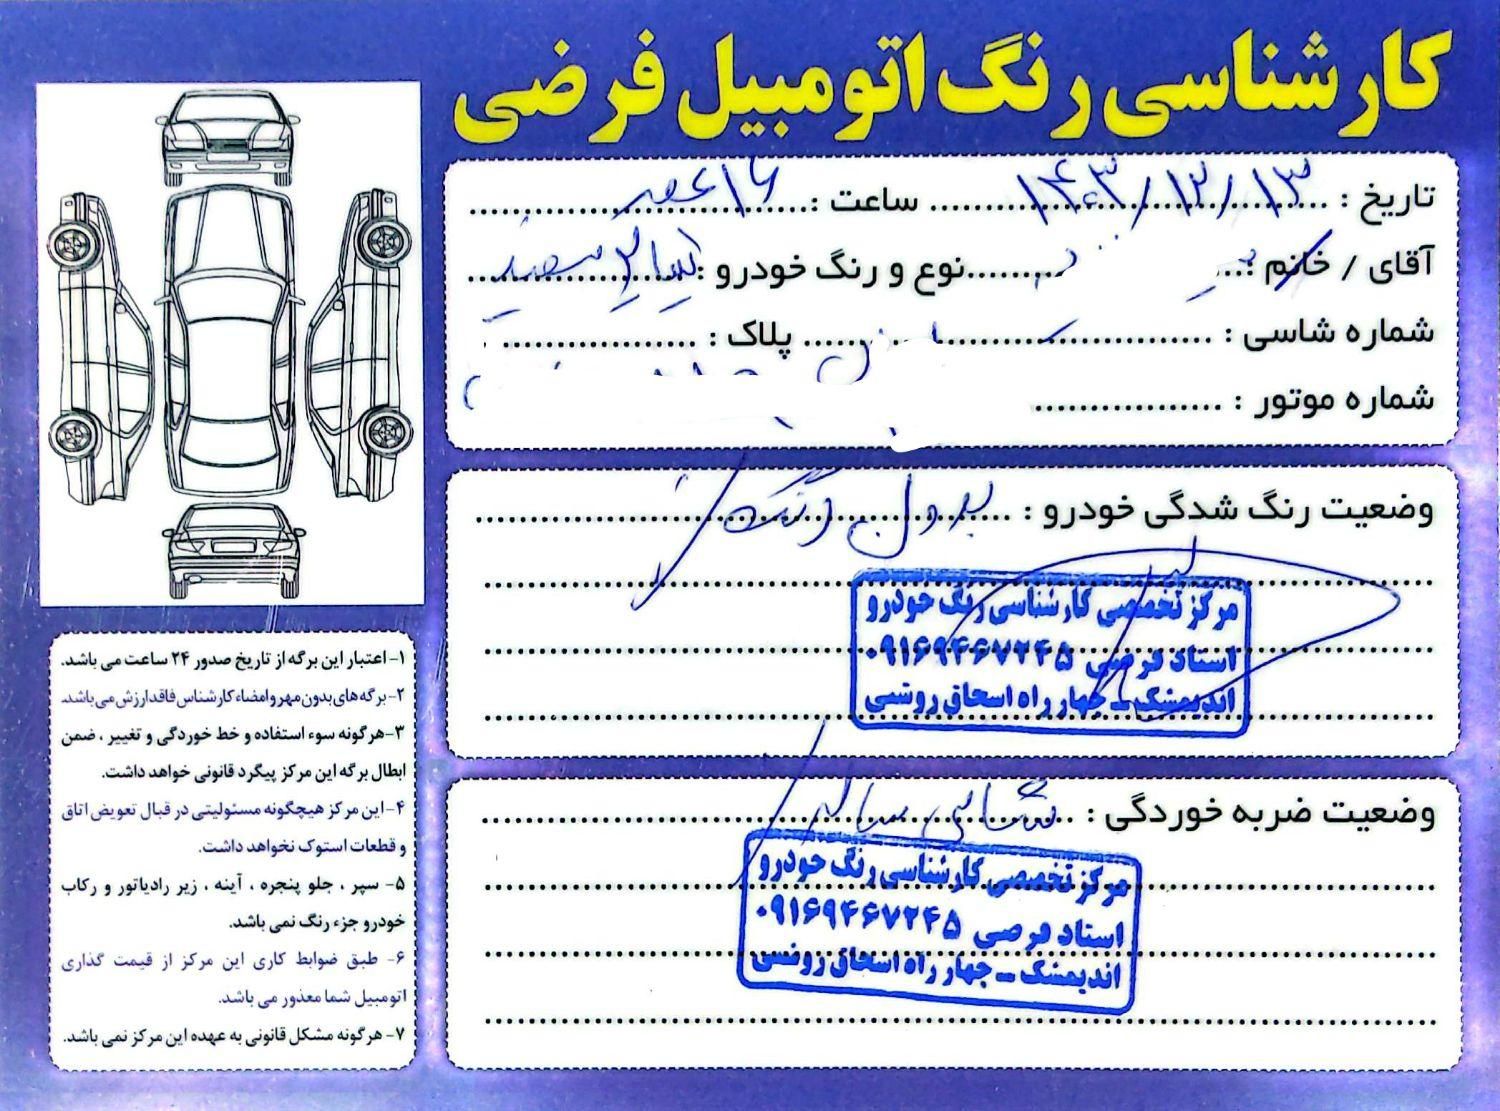 کارشناسی رنگ اتومبیل فرضی
تاریخ : ۱۴۰۳/۱۲/۱۳ ساعت : ۶ عصر
آقای / خانم : نوع و رنگ خودرو : سفید
شماره شاسی : پلاک :
شماره موتور :
وضعیت رنگ شدگی خودرو : بدون رنگ
مرکز تخصصی کارشناسی رنگ خودرو
استاد فرضی ۰۹۱۶۹۴۶۷۲۴۵
اندیمشک ــ چهار راه اسحاق روشنی
وضعیت ضربه خوردگی : شاسی سالم
مرکز تخصصی کارشناسی رنگ خودرو
استاد فرضی ۰۹۱۶۹۴۶۷۲۴۵
اندیمشک ــ چهار راه اسحاق روشنی
۱- اعتبار این برگه از تاریخ صدور ۲۴ ساعت می باشد.
۲- برگه های بدون مهر و امضاء کارشناس فاقد ارزش می باشد.
۳- هرگونه سوء استفاده و خط خوردگی و تغییر ، ضمن
ابطال برگه این مرکز پیگرد قانونی خواهد داشت.
۴- این مرکز هیچگونه مسئولیتی در قبال تعویض اتاق
و قطعات استوک نخواهد داشت.
۵- سپر ، جلو پنجره ، آینه ، زیر رادیاتور و رکاب
خودرو جزء رنگ نمی باشد.
۶- طبق ضوابط کاری این مرکز از قیمت گذاری
اتومبیل شما معذور می باشد.
۷- هرگونه مشکل قانونی به عهده این مرکز نمی باشد.